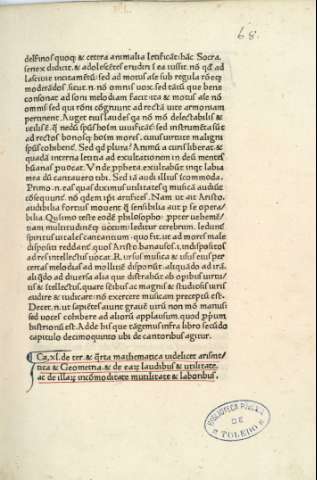 68.
delfinos quoq; & cetera animalia letificāt: hāc Socra
senex didicit. & adolescētes erudiri ī ea iussit. nō qd' ad
lasciuie incitamētū: sed ad motus aīe sub regula rōeq;
moderādos. sicut. n. nō omnis uox. sed tātū que bene
consonat ad soni melodiam facit ita & motus aīe nō
omnes sed qui rōni cōgruunt ad rectā uite armoniam
pertinent. Auget eius laudes qa nō mō delectabilis &
utilis ē. q nedū spūs hoīm uiuificat: sed instrumētis ut
ad rectos bonosq; hoīm mores. eius uirtute maligni
spūs cohibent'. Sed qd plura? Animū a curis liberat. &
quadā interna letitia ad exultationem in deū mentes
hūanas puocat. Vn de ppheta. exultabūt inqt labia
mea dū cantauero tibi. Sed iā audi illius īcommoda.
Primo. n. eas quas diximus utilitates q musicā audiūt
cōsequunt'. nō qdem ipsi artifices. Nam ut ait Aristo.
audibilia fortius mouent q sensibilia aut p se opera/
bilia. Quīmo teste eodē philosopho. ppter uehemē/
tiam multitudinēq; uocum leditur cerebrum. ledunt'
spiritus uitales cantantium. quo fit. ut ad mores male
dispositi reddant'. quos Aristo. banausos. i. indispositos
ad res intellectus uocat. Rursus musica & usus eius per
certas melodias ad mollitiē disponit. aliquādo ad irā.
aliqdo ad diuersa alia que distrahūt ab opibus uirtu/
tis & itellectus. quare scibus ac magnis & studiosis uiris
audire & iudicare: nō exercere musicam preceptū est.
Decet. n. ut sapiētes aiunt graues uirū non mō manus
sed uoces cohibere ad aliorū applausum. quod pprium
histrionū est. Adde his que tāgemus infra libro secūdo
capitulo decimoquinto ubi de cantoribus agitur.
Ca. xl. de ter. & qrta mathematica uidelicet arismc/
tica & Geometria. & de eaꝝ laudibus & utilitate.
ac de illaꝝ incōmoditate inutilitate & laboribus.
BIBLIOTECA PÚBLICA
DE
TOLEDO